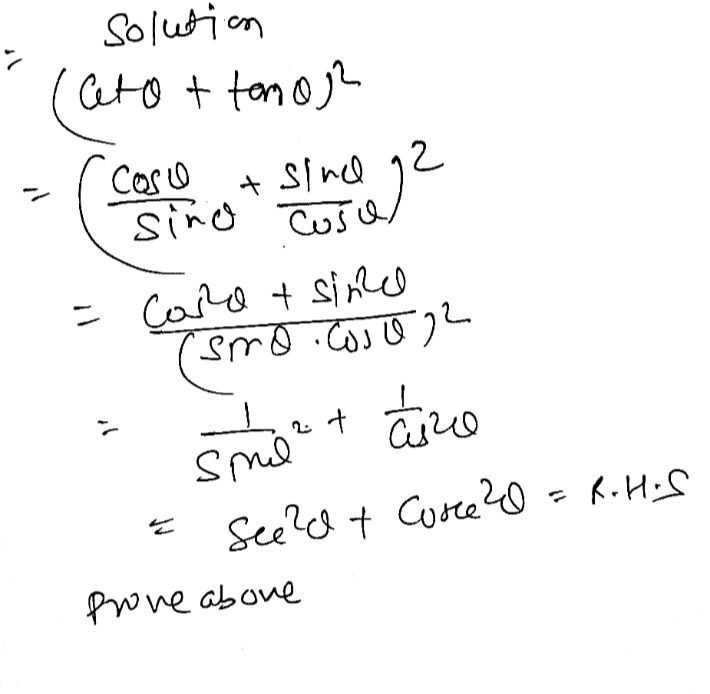 = Solution
(Cotθ + tanθ)²
= (Cosθ/Sinθ + Sinθ/Cosθ)²
= Cos²θ + Sin²θ/(Sinθ . Cosθ)²
= 1/Sinθ² + 1/Cos²θ
= Sec²θ + Cosec²θ = R.H.S
Prove above